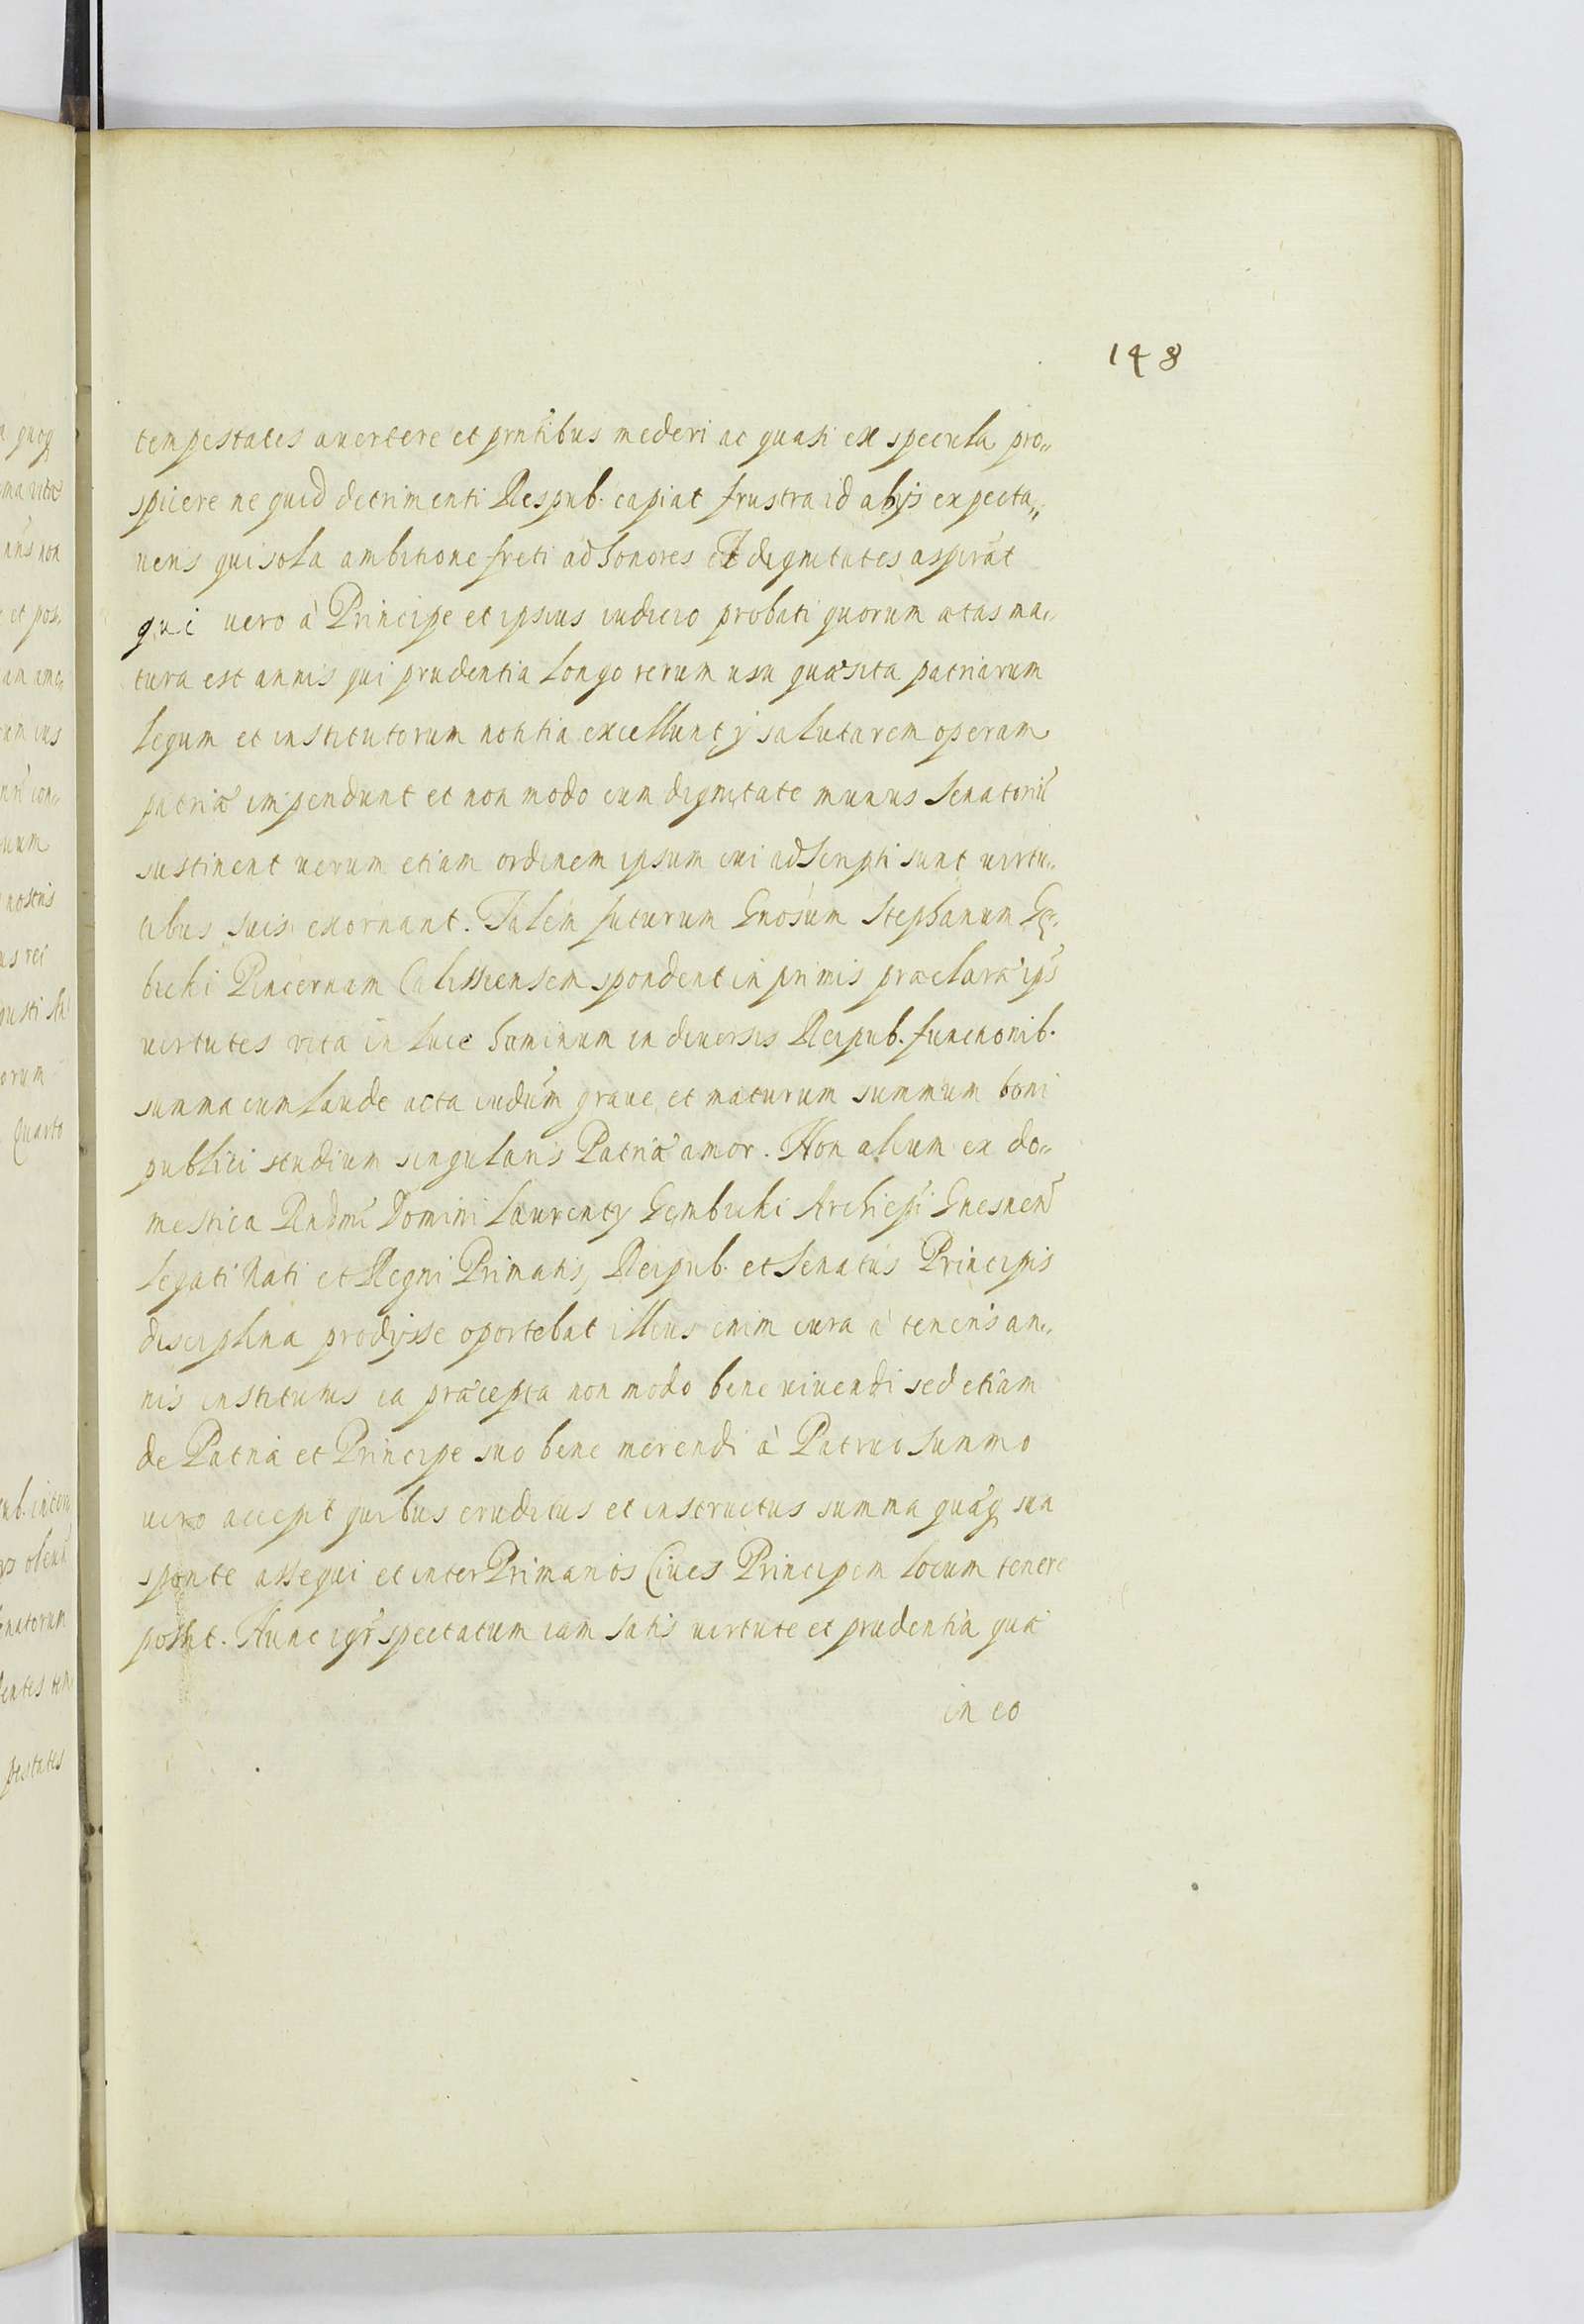 148
tempestates auertere et prñtibus mederi ac quasi ex specula pro„
spicere ne quid detrimenti Respub. capiat frustra id abijs expecta„
ueris qui sola ambitione freti ad honores et dignitates aspirãt
qui uero à Principe et ipsius iudicio probati quorum ætas ma„
tura est annis qui prudentia longo rerum usu quæsita patriarum
legum et institutorum notitia excellunt ÿ salutarem operam
patriæ impendunt et non modo cum dignitate munus Senatoriũ
sustinent uerum etiam ordinem ipsum cui adscripti sunt uirtu„
tibus suis exornant. Talem futurum Gnosum Stephanum Gę„
bicki Pincernam Calissiensem spondent in primis præclaræ ips̃
uirtutes vita in luce hominum in diuersis Reipub. functionib.
summa cum laude acta iudiũm graue et maturum summum boni
publici studium singularis Patriæ amor. Non alium ex do„
mestica Rndmĩ Domini Laurentÿ Gembicki Archiepĩ Gnesneñ
Legati Nati et Regni Primatis, Reipub. et Senatus Principis
disciplina prodijsse oportebat illius enim cura à teneris an„
nis institutus ea præcepta non modo bene uiuendi sed etiam
de Patria et Principe suo bene merendi à Patruo Summo
uiro accepit quibus eruditus et instructus summa quæq sua
sponte assequi et inter Primarios Ciues Principem locum tenere
possit. Hunc igr̃ spectatum iam satis uirtute et prudentia quæ
in eo